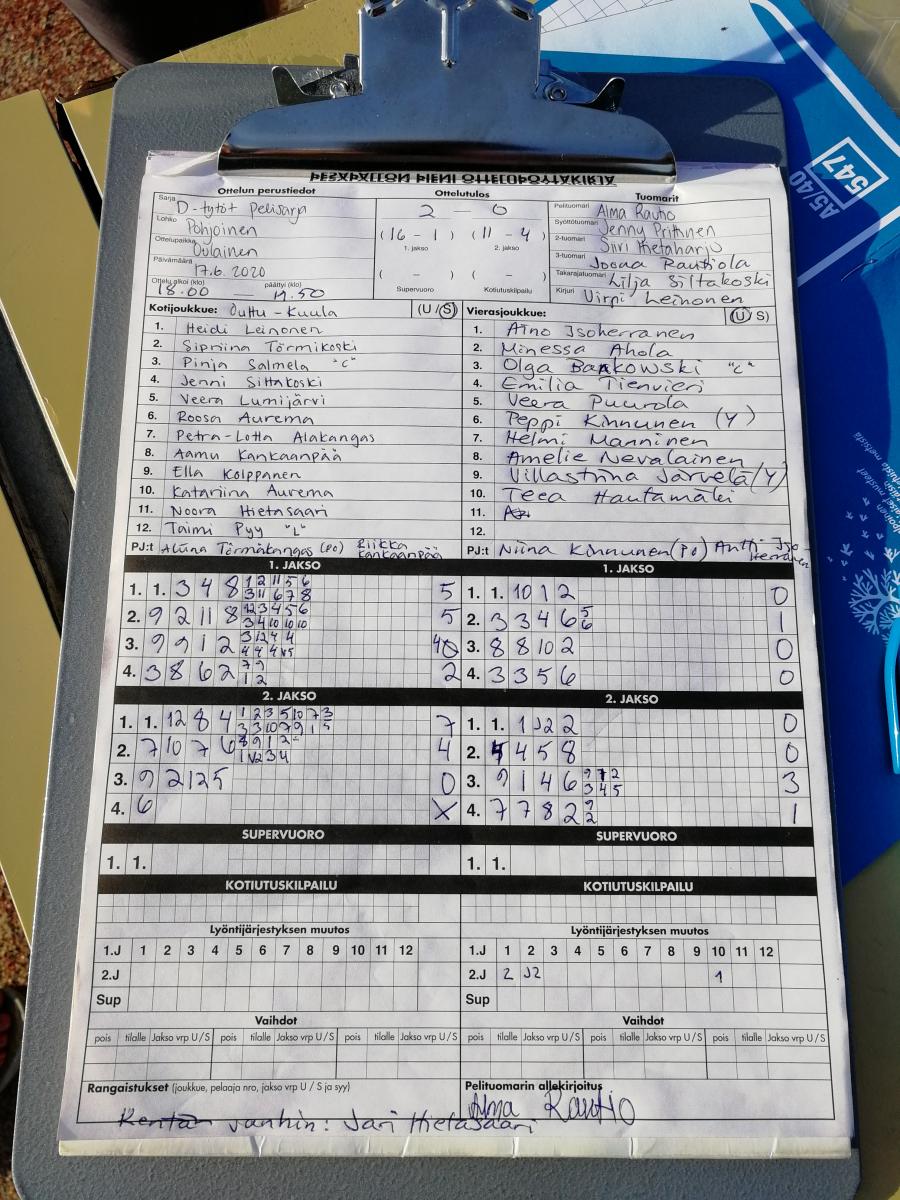 PESÄPALLON PIENI OTTELUPÖYTÄKIRJA
Ottelun perustiedot
Sarja D-tytöt Pelisarja
Lohko Pohjoinen
Ottelupaikka Oulainen
Päivämäärä 17.6.2020
Ottelu alkoi (klo) päättyi (klo)
18.00 — 19.50
Ottelutulos
2 – 0
(16 – 1) (11 – 4)
1. jakso 2. jakso
( – ) ( – )
Supervuoro Kotiutuskilpailu
Tuomarit
Pelituomari Alma Rautio
Syöttötuomari Jenny Prittinen
2-tuomari Siiri Hietaharju
3-tuomari Joona Rautiola
Takarajatuomari Lilja Siltakoski
Kirjuri Virpi Leinonen
Kotijoukkue: Outtu-Kuula (U / S)
1. Heidi Leinonen
2. Sipriina Törmikoski
3. Pinja Salmela "C"
4. Jenni Siltakoski
5. Veera Lumijärvi
6. Roosa Aurema
7. Petra-Lotta Alakangas
8. Aamu Kankaanpää
9. Ella Kolppanen
10. Katariina Aurema
11. Noora Hietasaari
12. Taimi Pyy "L"
PJ:t Aliina Törmäkangas (PO) Riikka Kankaanpää
Vierasjoukkue: (U / S)
1. Aino Isoherranen
2. Minessa Ahola
3. Olga Bankowski "C"
4. Emilia Tienvieri
5. Veera Puurola
6. Peppi Kinnunen (Y)
7. Helmi Manninen
8. Amelie Nevalainen
9. Villastiina Järvelä (Y)
10. Teea Hautamäki
11.
12.
PJ:t Niina Kinnunen (PO) Antti Isoherranen
1. JAKSO
1. 1. 3 4 8 1 2 11 5 6 5
3 11 6 7 8
2. 9 2 11 8 12 3 4 5 6 5
3 4 10 10 10
3. 9 9 1 2 3 12 4 4
4. 3 8 6 2 7 9 2
1 2
1. JAKSO
1. 1. 10 1 2 0
2. 3 3 4 6 5 1
6
3. 8 8 10 2 0
4. 3 3 5 6 0
2. JAKSO
1. 1. 12 8 4 1 2 3 5 10 7 3 7
3 3 10 7 9 1 5
2. 7 10 7 6 8 9 1 2 - 4
1 12 3 4
3. 9 2 12 5 0
4. 6 X
2. JAKSO
1. 1. 1 J2 2 0
2. 4 4 5 8 0
3. 9 1 4 6 9 7 2 3
3 4 5
4. 7 7 8 2 9 1
2
SUPERVUORO
1. 1.
SUPERVUORO
1. 1.
KOTIUTUSKILPAILU
KOTIUTUSKILPAILU
Lyöntijärjestyksen muutos
1.J 1 2 3 4 5 6 7 8 9 10 11 12
2.J
Sup
Lyöntijärjestyksen muutos
1.J 1 2 3 4 5 6 7 8 9 10 11 12
2.J 2 J2 1
Sup
Vaihdot
pois tilalle Jakso vrp U / S pois tilalle Jakso vrp U / S pois tilalle Jakso vrp U / S
Vaihdot
pois tilalle Jakso vrp U / S pois tilalle Jakso vrp U / S pois tilalle Jakso vrp U / S
Rangaistukset (joukkue, pelaaja nro, jakso vrp U / S ja syy)
Pelituomarin allekirjoitus
Alma Rautio
Kentän vanhin: Jari Hietasaari
A5/40
547